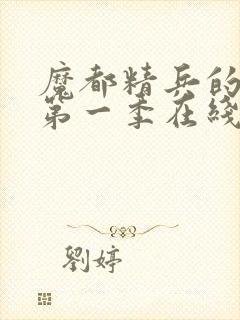 魔都精兵的
第一季在綫
劉婷